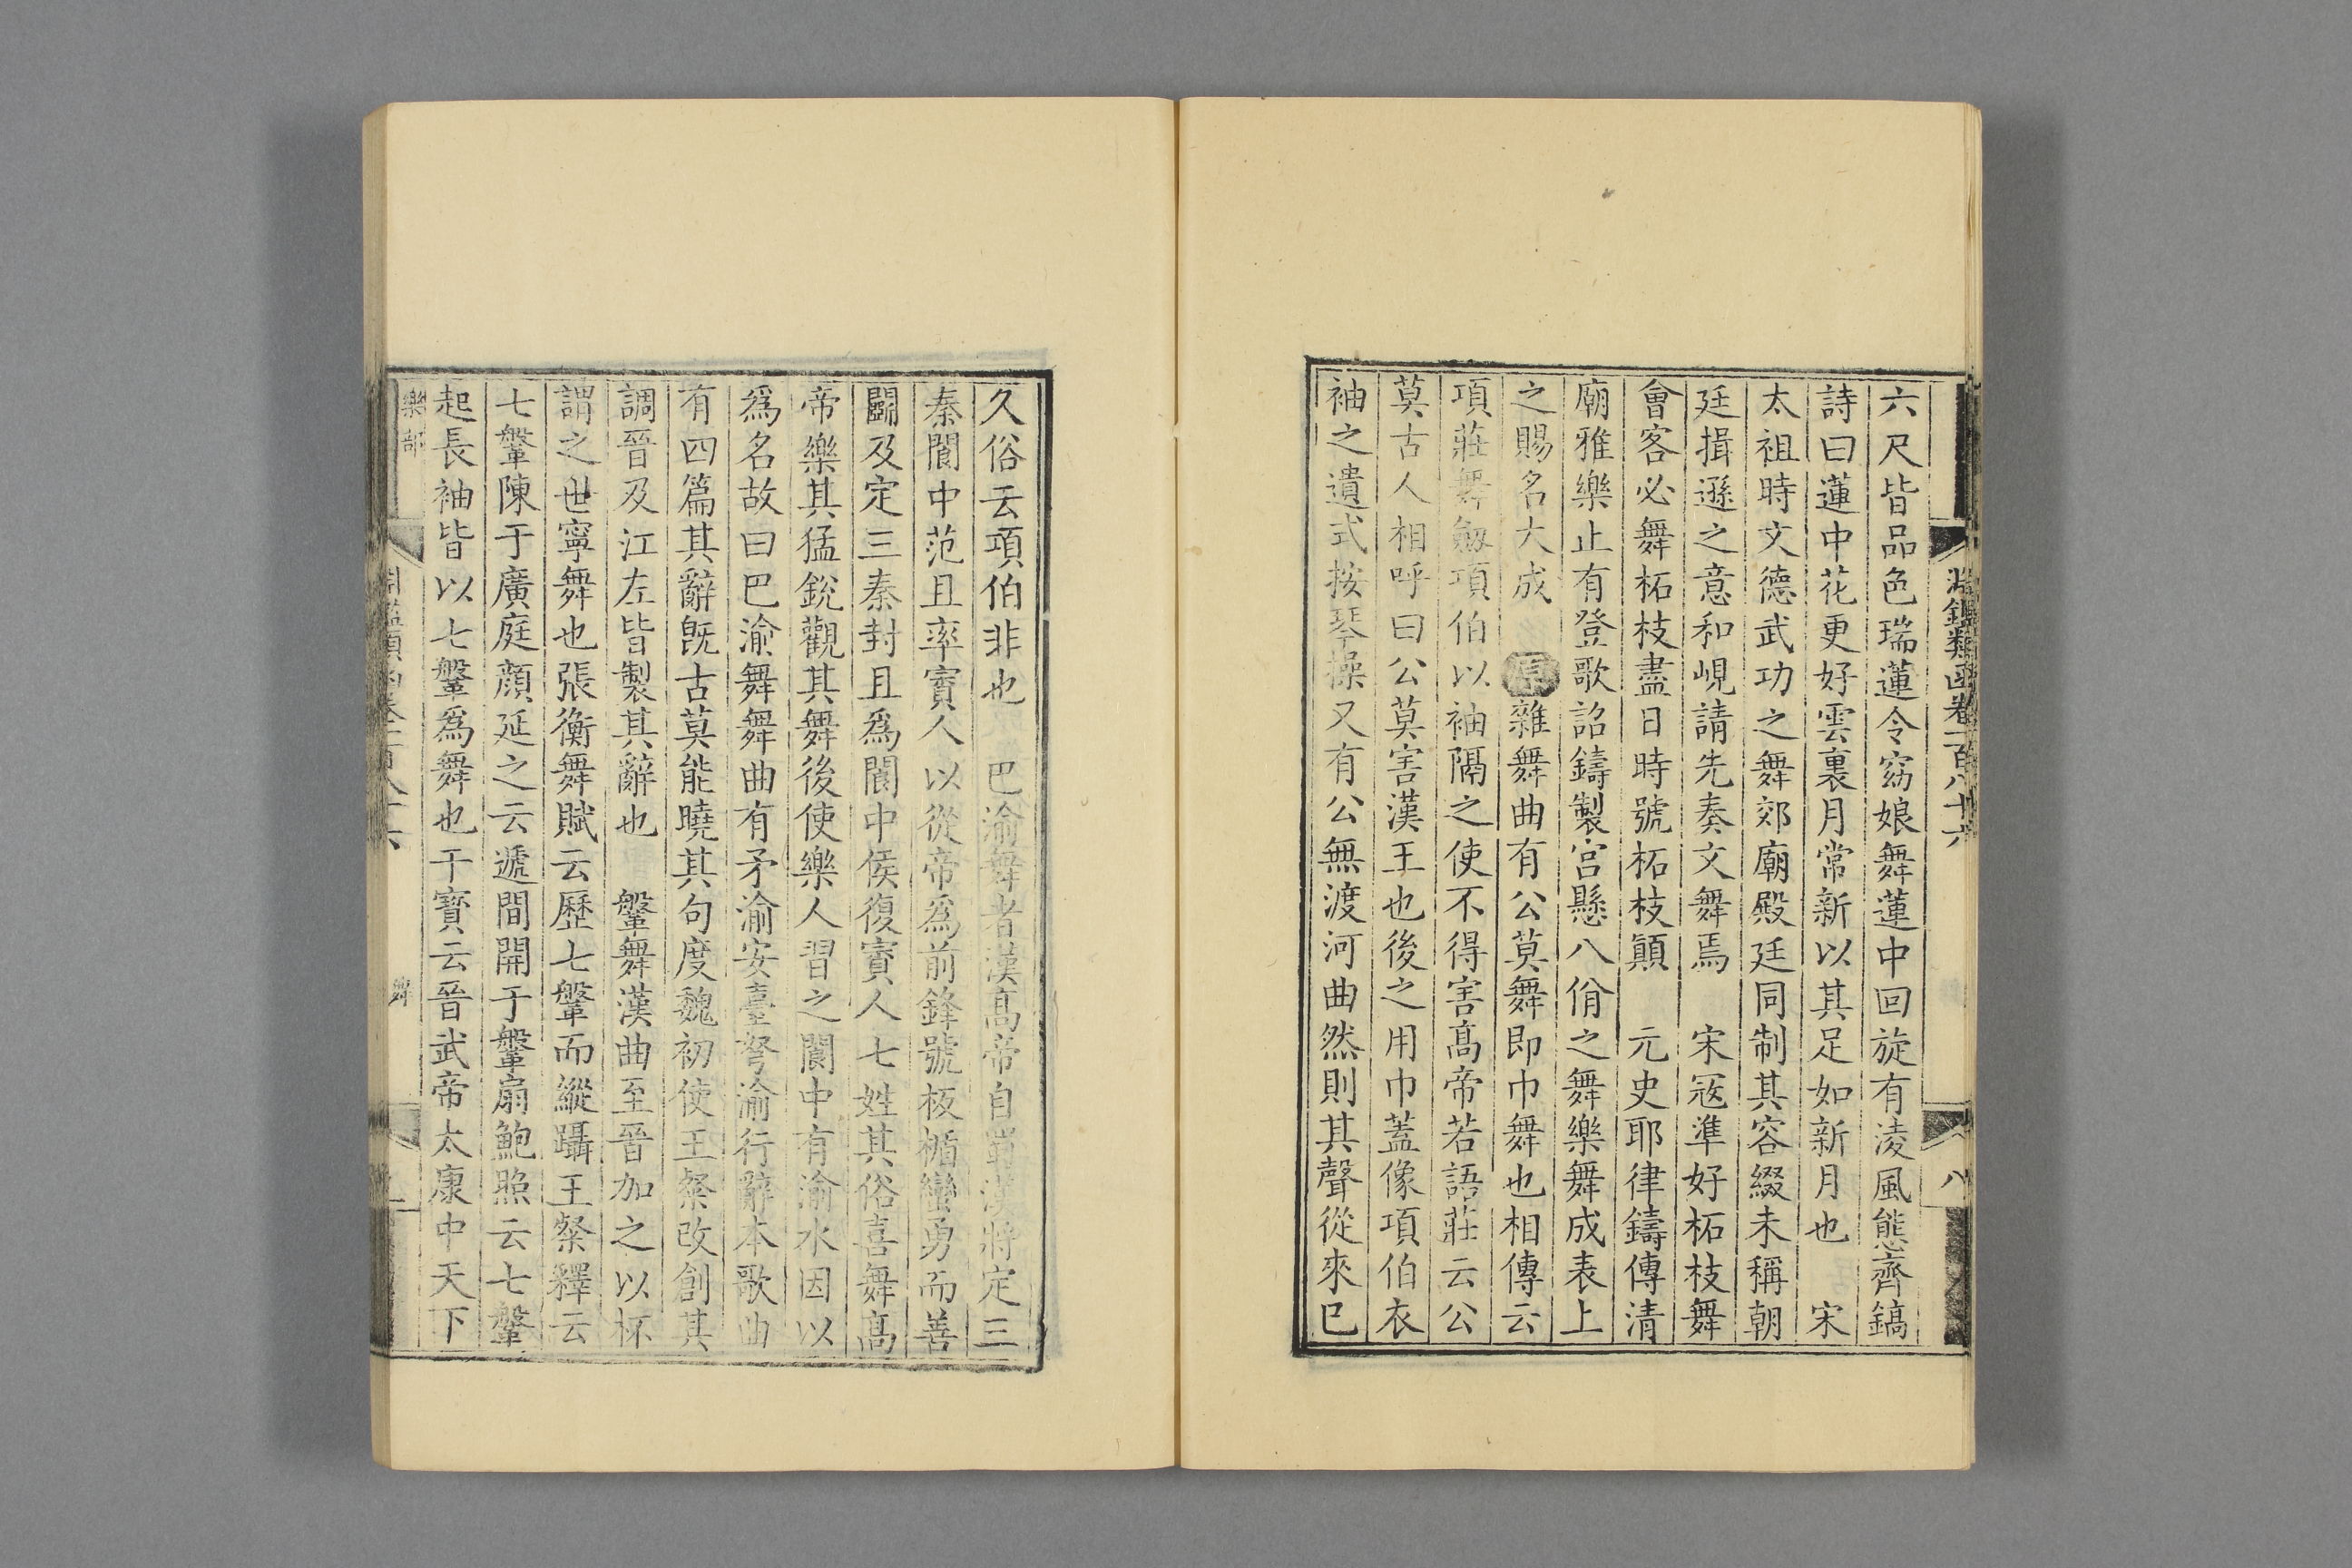 淵鑑類函卷一百八十六
八
六尺皆品色瑞蓮令窈娘舞蓮中回旋有凌風態齊鎬
詩曰蓮中花更好雲裏月常新以其足如新月也　宋
太祖時文德武功之舞郊廟殿廷同制其容綴未稱朝
廷揖遜之意和峴請先奏文舞焉　宋宼準好柘枝舞
會客必舞柘枝盡日時號柘枝顛　元史耶律鑄傳清
廟雅樂止有登歌詔鑄製宮懸八佾之舞樂舞成表上
之賜名大成　原雜舞曲有公莫舞即巾舞也相傳云
項莊舞劔項伯以袖隔之使不得害髙帝若語莊云公
莫古人相呼曰公莫害漢王也後之用巾蓋像項伯衣
袖之遺式按琴操又有公無渡河曲然則其聲從來已
久俗云項伯非也　巴渝舞者漢髙帝自蜀漢將定三
秦閬中范且率賨人以從帝爲前鋒號板楯蠻勇而善
鬭及定三秦封且爲閬中侯復賨人七姓其俗喜舞髙
帝樂其猛銳觀其舞後使樂人習之閬中有渝水因以
爲名故曰巴渝舞舞曲有矛渝安臺弩渝行辭本歌曲
有四篇其辭旣古莫能曉其句度魏初使王粲改創其
調晉及江左皆製其辭也　鞶舞漢曲至晉加之以杯
謂之世寧舞也張衡舞賦云歷七鞶而縱躡王粲釋云
七鞶陳于廣庭顔延之云遞間開于鞶扇鮑照云七鞶
起長袖皆以七鞶爲舞也干寳云晉武帝太康中天下
樂部
舞